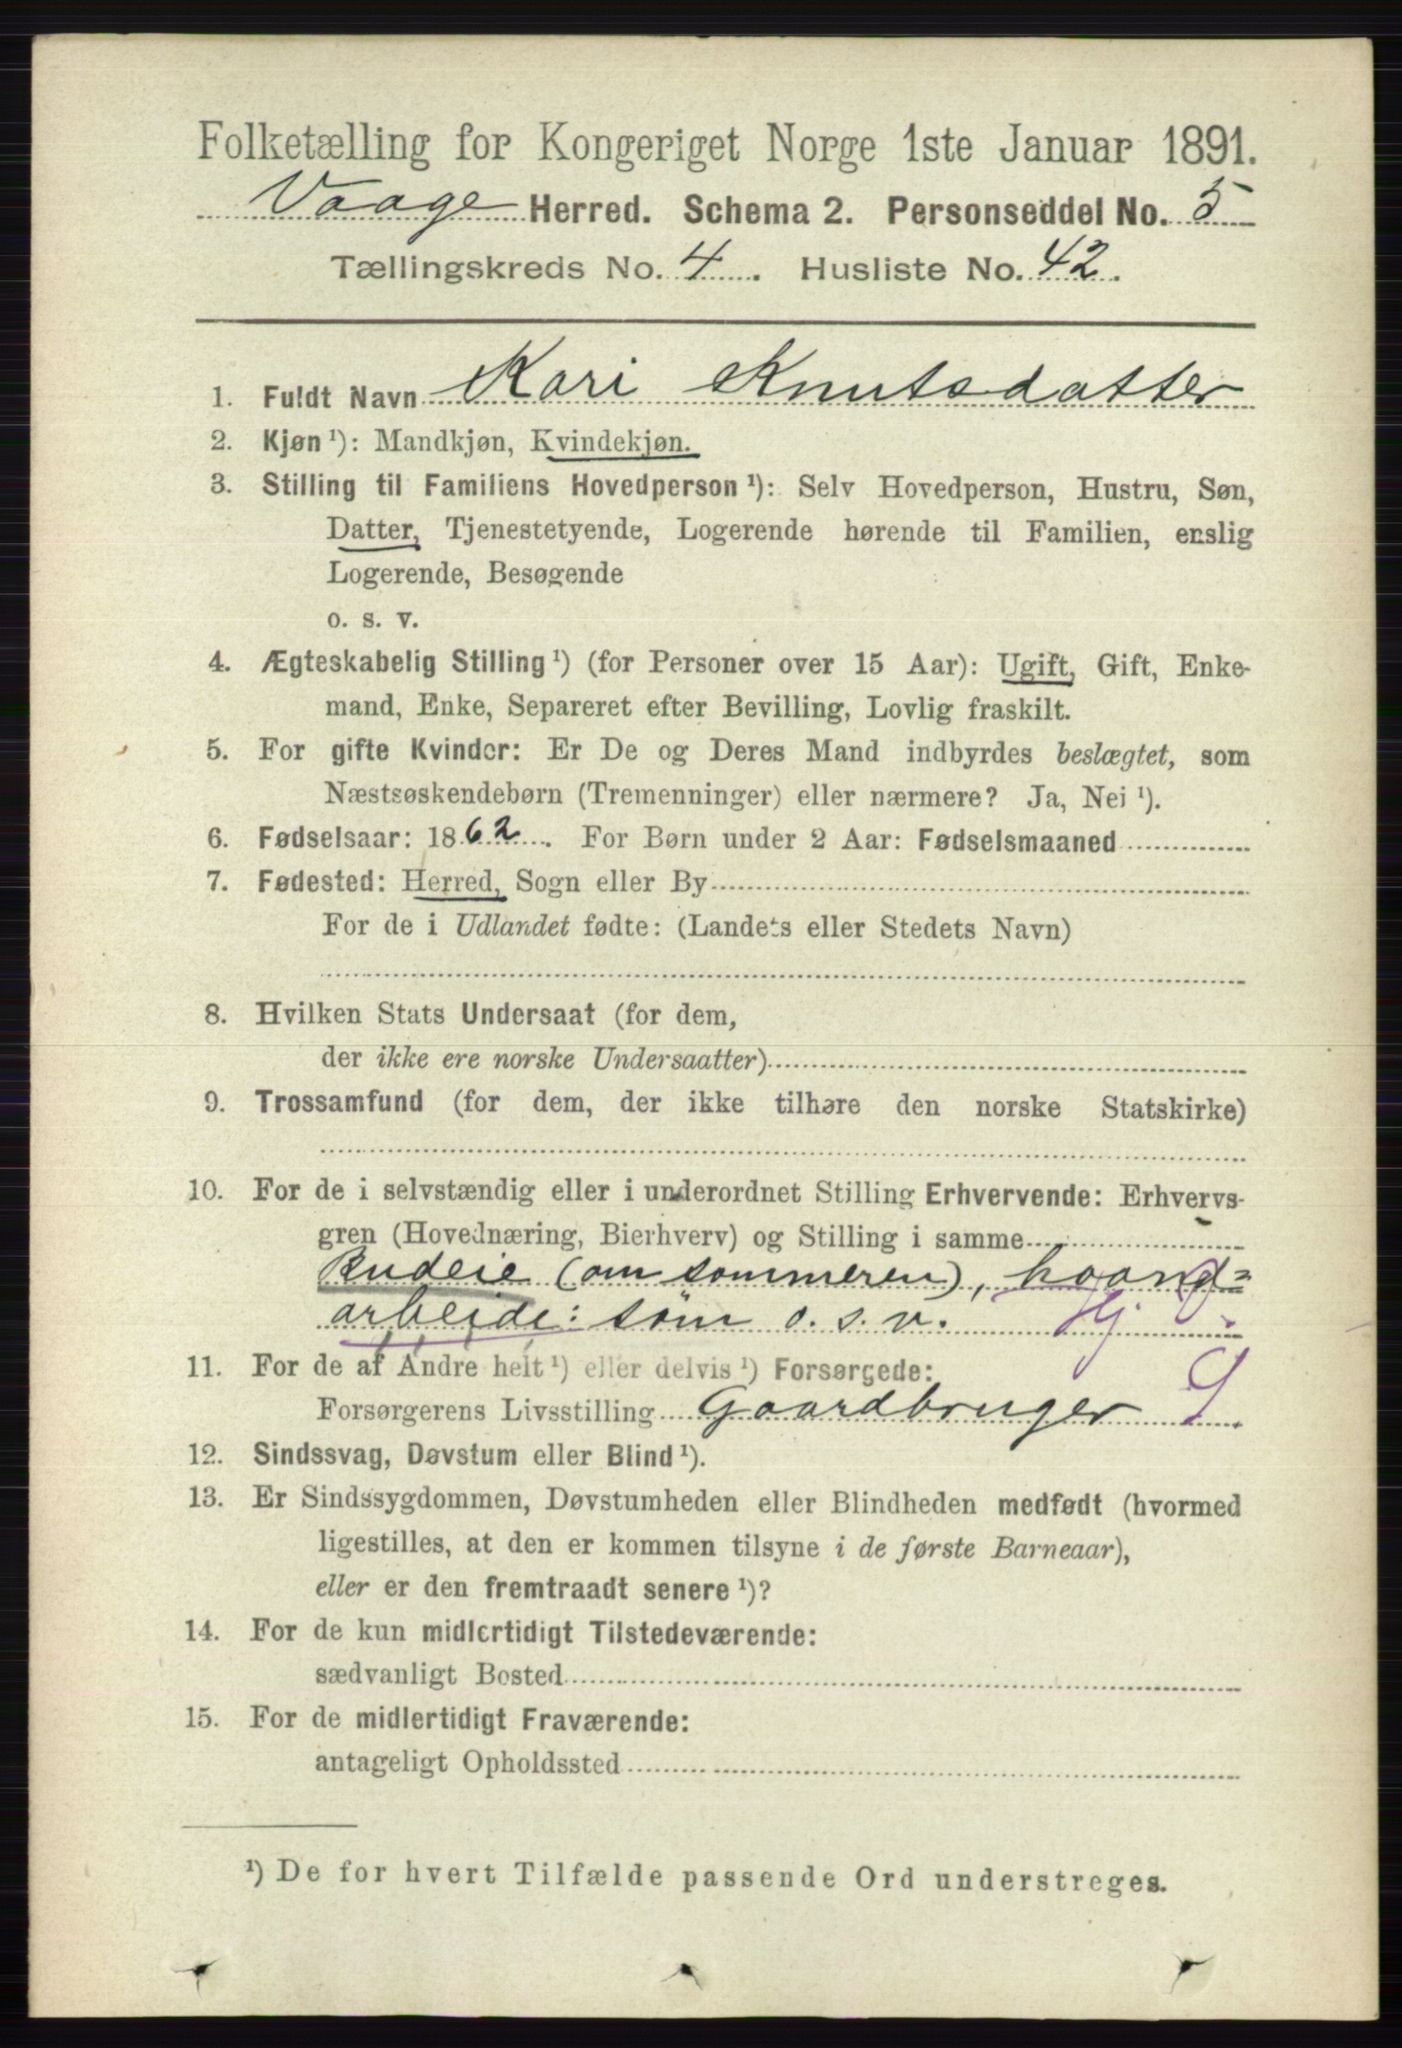 Folketælling for Kongeriget Norge 1ste Januar 1891.
Vaage Herred. Schema 2. Personseddel No. 5
Tællingskreds No. 4. Husliste No. 42.
1. Fuldt Navn Kari Knutsdatter
2. Kjøn ¹): Mandkjøn, Kvindekjøn.
3. Stilling til Familiens Hovedperson ¹): Selv Hovedperson, Hustru, Søn,
Datter, Tjenestetyende, Logerende hørende til Familien, enslig
Logerende, Besøgende
o. s. v.
4. Ægteskabelig Stilling ¹) (for Personer over 15 Aar): Ugift, Gift, Enke-
mand, Enke, Separeret efter Bevilling, Lovlig fraskilt.
5. For gifte Kvinder: Er De og Deres Mand indbyrdes beslægtet, som
Næstsøskendebørn (Tremenninger) eller nærmere? Ja, Nei ¹).
6. Fødselsaar: 1862. For Børn under 2 Aar: Fødselsmaaned
7. Fødested: Herred, Sogn eller By
For de i Udlandet fødte: (Landets eller Stedets Navn)
8. Hvilken Stats Undersaat (for dem,
der ikke ere norske Undersaatter)
9. Trossamfund (for dem, der ikke tilhøre den norske Statskirke)
10. For de i selvstændig eller i underordnet Stilling Erhvervende: Erhvervs-
gren (Hovednæring, Bierhverv) og Stilling i samme
Budeie (om sommeren), haand=
arbeide: søm o. s. v. Hj
11. For de af Andre helt ¹) eller delvis ¹) Forsørgede:
Forsørgerens Livsstilling Gaardbruger
12. Sindssvag, Døvstum eller Blind ¹).
13. Er Sindssygdommen, Døvstumheden eller Blindheden medfødt (hvormed
ligestilles, at den er kommen tilsyne i de første Barneaar),
eller er den fremtraadt senere ¹)?
14. For de kun midlertidigt Tilstedeværende:
sædvanligt Bosted
15. For de midlertidigt Fraværende:
antageligt Opholdssted
¹) De for hvert Tilfælde passende Ord understreges.